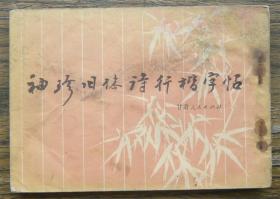 袖珍旧体诗行楷字帖
甘肃人民出版社